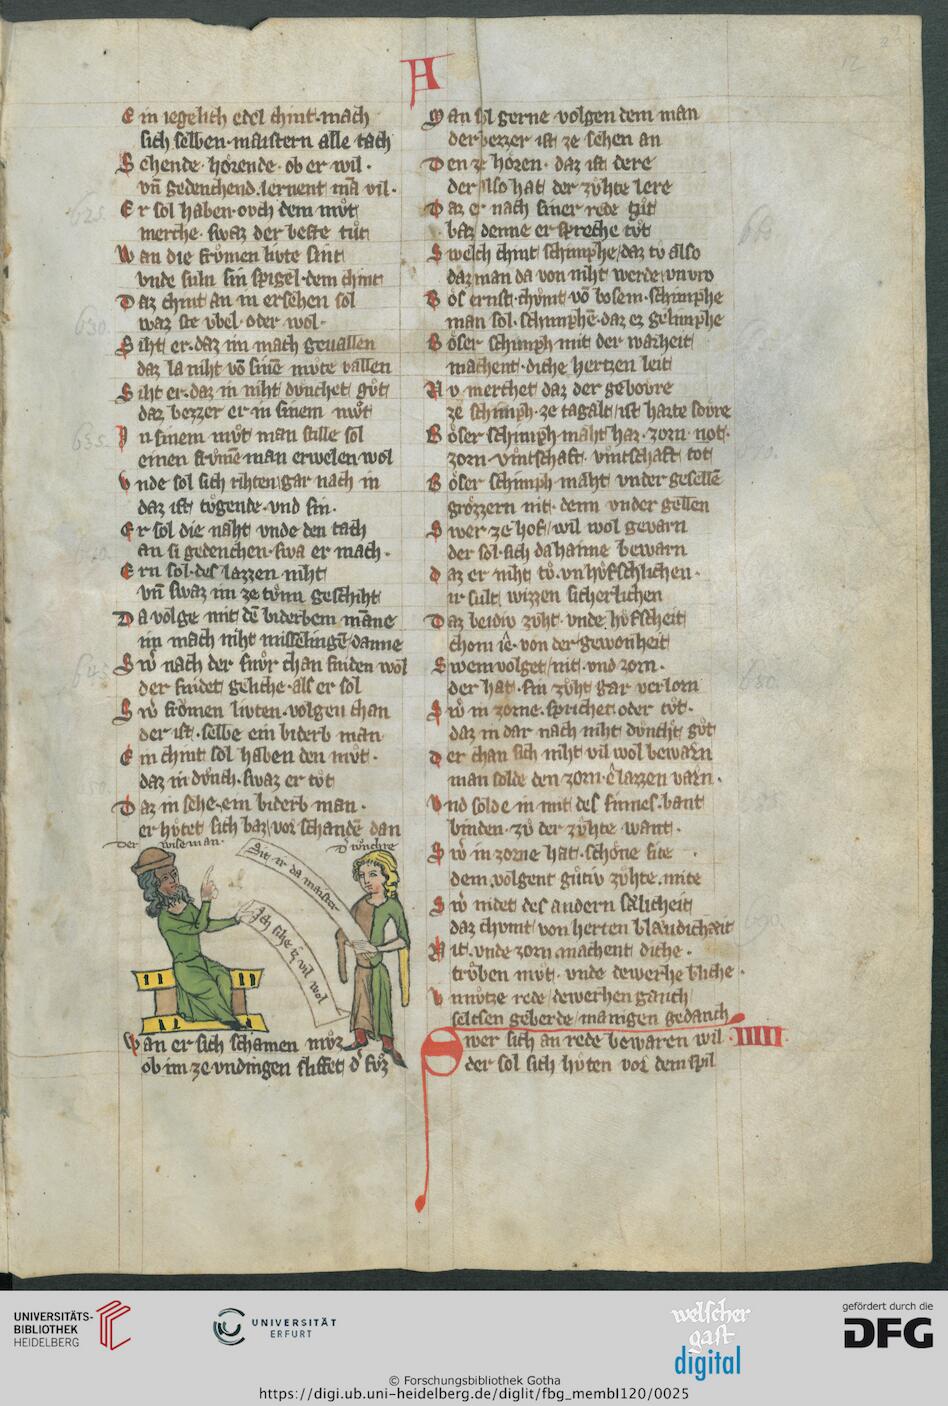 A
12
E in iegelich edel chint mach
sich selben maistern alle tach
S ehende· hoͤrende· ob er wil·
vn̄ gedenchend· lernent mā vil·
E r sol haben ovch dem mvͦt
merche· swaz der beste tuͦt
W an die frvͦmen livte sint
vnde suln sin spigel· dem chint
D az chint an in ersehen sol
waz ste vbel· oder wol·
S iht er· daz im mach geuallen
daz la niht vō sinē mvͦte vallen
S iht er· daz in niht dvnchet gvͦt
daz bezzer er in sinem mvͦt
J n sinem mvͦt man stille sol
einen frvͦmē man erwelen wol
V nde sol sich rihten gar nach in
daz ist tvͦgende· vnd sin·
E r sol die naht vnde den tach
an si gedenchen· swa er mach·
E rn sol· des lazzen niht
vn̄ swaz im ze tvͦnn geschiht
D a volge mit dē biderbem māne
im mach niht misselingē danne
S wͦ nach der snvͦr chan sniden wol
der snidet geliche· als er sol
S wͦ frvͦmen livten· volgen chan
der ist· selbe ein biderb man
E in chint sol haben den mvͦt·
daz in dvͦnch· swaz er tvͦt
D az in sehe· ein biderb man·
er hvͤtet sich baz vor schandē dan
Der wise man·
Sit ir da maister
Jch sihe ez vil wol
W an er sich schamen mvͦz
ob im ze vndingen sliffet d' fvͦz
M an sol gerne volgen dem man
der bezzer ist ze sehen an
D en ze hoͤren· daz ist dere
der also hat der zvͤhte lere
D az er nach siner rede gvͦt
baz denne er spreche tvͦt
S welch chint schimphe daz tv also
daz man da von niht werde vnvro
B os ernst· chvmt vō bosem· schimphe
man sol· schimphē· daz ez gelimphe
B oͤser schimph mit der warheit
machent· diche hertzen leit
N v merchet daz der gebovre
ze schimph· ze tagalt· ist harte sovre
B oͤser schimph maht haz· zorn· not·
zorn· vintschaft· vintschaft tot
B oͤser schimph maht vnder gesellē
groͤzzern nit· denn vnder gellen
S wer ze hof wil wol gevarn
der sol· sich da haime bewarn
D az er niht tv· vnhvfschlichen·
ir sult wizzen sicherlichen
D az beidiv zvht· vnde hvfscheit
chom îe· von der gewonheit
S wem volget nit· vnd zorn·
der hat· sin zvht gar verlorn
S wͦ in zorne· sprichet oder tvͦt·
daz in dar nach niht dvnchet gvͦt
D er chan sich niht vil wol bewarn
man solde den zorn· ê lazzen varn·
V nd solde in mit des sinnes· bant
binden· zvͦ der zvͤhte want·
S wͦ in zorne hat· schoͤne site
dem volgent gvͤtiv zvͤhte· mite
S wͦ nidet des andern sælicheit
daz chvmt von herten blaudicheit
N it· vnde zorn machent diche·
trvͤben mvͦt· vnde dewerhe bliche·
V nnvͤtze rede dewerhen ganch
seltsen geberde manigen gedanch
S wer sich an rede bewaren wil· IIIII
der sol sich hvͤten vor dem spil
UNIVERSITÄTS-
BIBLIOTHEK
HEIDELBERG
UNIVERSITÄT
ERFURT
welscher
gast
digital
gefördert durch die
DFG
© Forschungsbibliothek Gotha
https://digi.ub.uni-heidelberg.de/diglit/fbg_membI120/0025